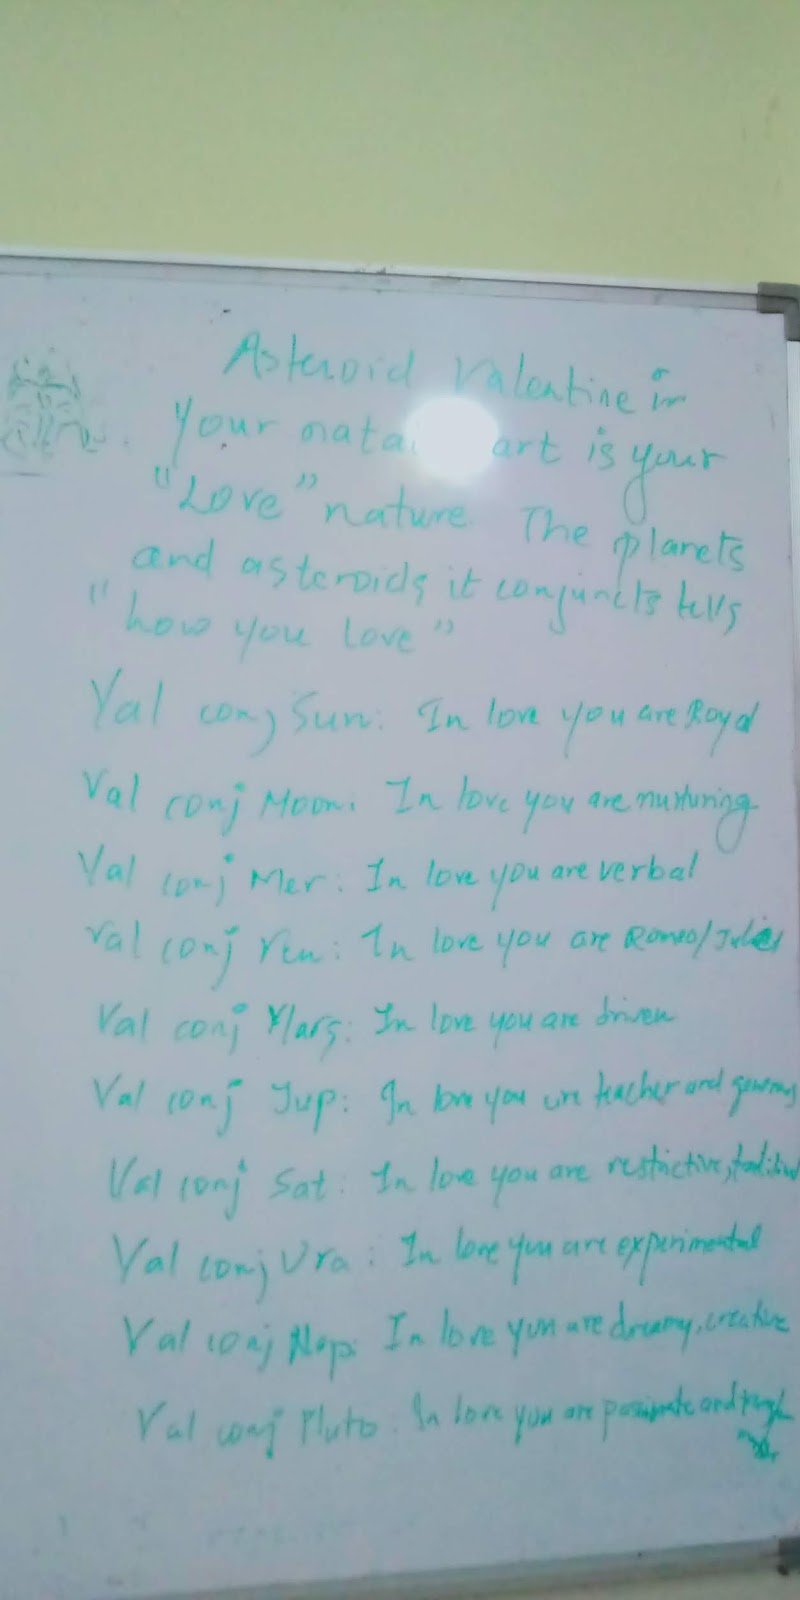 Asteroid Valentine in
your nata art is your
"Love" nature. The planets
and asteroids it conjuncts tells
"how you love"
Val conj Sun: In love you are Royal
Val conj Moon: In love you are nurturing
Val conj Mer: In love you are verbal
Val conj Ven: In love you are Romeo/Juliet
Val conj Mars: In love you are driven
Val conj Jup: In love you are teacher and generous
Val conj Sat: In love you are restrictive,
Val conj Ura: In love you are experimental
Val conj Nep: In love you are dreamy, creative
Val conj Pluto: In love you are passionate and